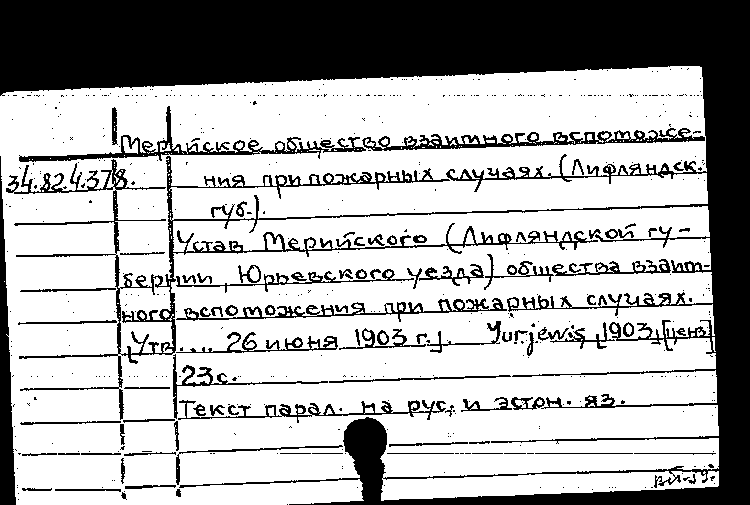 Мерийское общество взаимного вспоможе-
34.82.4.378. ния при пожарных случаях. (Лифляндск.
губ.).
Устав Мерийского (Лифляндской гу-
бернии, Юрьевского уезда) общества взаим-
ного вспоможения при пожарных случаях.
[Утв.... 26 июня 1903 г.]. Jurjewis, [1903] [ценз]
23 с.
Текст парал. на рус. и эстон. яз.